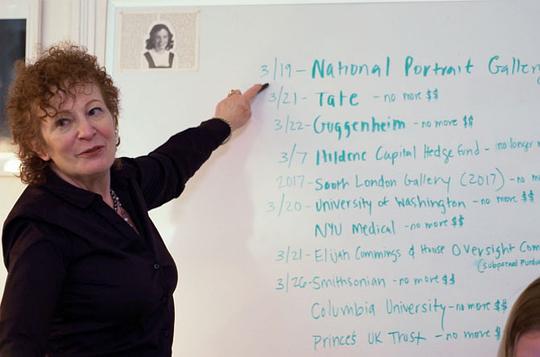 3/19 - National Portrait Gallery
3/21 - Tate - no more $$
3/22 - Guggenheim - no more $$
3/7 Hildene Capital Hedge fund - no longer
2017 - South London Gallery (2017) - no
3/20 - University of Washington - no more $$
NYU Medical - no more $$
3/21 - Elijah Cummings & House Oversight Com
(subpoenaed Purdue
3/26 - Smithsonian - no more $$
Columbia University - no more $$
Prince's UK Trust - no more $$